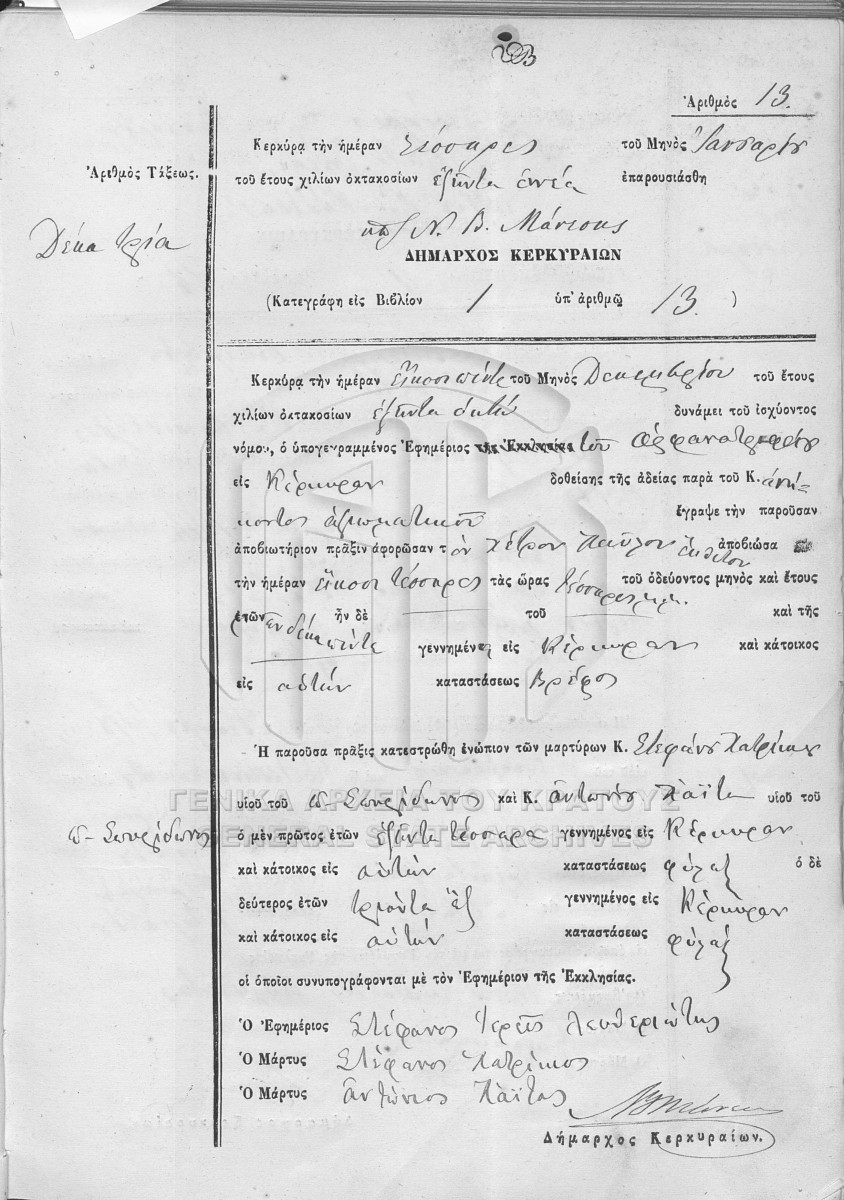 Ἀριθμὸς 13.
Κερκύρᾳ τὴν ἡμέραν τέσσαρες τοῦ Μηνὸς Ἰανουαρίου
Ἀριθμὸς Τάξεως.
τοῦ ἔτους χιλίων ὀκτακοσίων ἑξῆντα ἐννέα ἐπαρουσιάσθη
Δέκα τρία
Ν. Β. Μάνεσης
ΔΗΜΑΡΧΟΣ ΚΕΡΚΥΡΑΙΩΝ
(Κατεγράφη εἰς Βιβλίον 1 ὑπ' ἀριθμῷ 13. )
Κερκύρᾳ τὴν ἡμέραν εἴκοσι πέντε τοῦ Μηνὸς Δεκεμβρίου τοῦ ἔτους
χιλίων ὀκτακοσίων ἑξῆντα ὀκτώ δυνάμει τοῦ ἰσχύοντος
νόμου, ὁ ὑπογεγραμμένος Ἐφημέριος τῆς Ἐκκλησίας τοῦ Ὀρφανοτροφείου
εἰς Κέρκυραν δοθείσης τῆς ἀδείας παρὰ τοῦ Κ. ἀνή-
κοντος ἀξιωματικοῦ ἔγραψε τὴν παροῦσαν
ἀποβιωτήριον πρᾶξιν ἀφορῶσαν τὸν Πέτρον Παῦλον ἔκθετον ἀποβιώσα
τὴν ἡμέραν εἴκοσι τέσσαρες τὰς ὥρας τέσσαρες μ.μ. τοῦ ὁδεύοντος μηνὸς καὶ ἔτους
ἐτῶν ἦν δὲ τοῦ καὶ τῆς
γεννημένο εἰς Κέρκυραν καὶ κάτοικος
εἰς αὐτήν καταστάσεως Βρέφος
Ἡ παροῦσα πρᾶξις κατεστρώθη ἐνώπιον τῶν μαρτύρων Κ. Στεφάνου Πατρίκιου
ΓΕΝΙΚΑ ΑΡΧΕΙΑ ΤΟΥ ΚΡΑΤΟΥΣ
υἱοῦ τοῦ π- Σπυρίδωνος καὶ Κ. Ἀντωνίου Πάϊτα υἱοῦ τοῦ
GENERAL STATE ARCHIVES
π- Σπυρίδωνος
ὁ μὲν πρῶτος ἐτῶν ἑξῆντα τέσσαρα γεννημένος εἰς Κέρκυραν
καὶ κάτοικος εἰς αὐτήν καταστάσεως φύλαξ ὁ δὲ
δεύτερος ἐτῶν τριάντα ἓξ γεννημένος εἰς Κέρκυραν
καὶ κάτοικος εἰς αὐτήν καταστάσεως φύλαξ
οἱ ὁποῖοι συνυπογράφονται μὲ τὸν Ἐφημέριον τῆς Ἐκκλησίας.
Ὁ Ἐφημέριος Στέφανος Ἱερεὺς Λευθεριώτης
Ὁ Μάρτυς Στέφανος Πατρίκιος
Ὁ Μάρτυς Ἀντώνιος Πάϊτας
Δήμαρχος Κερκυραίων.